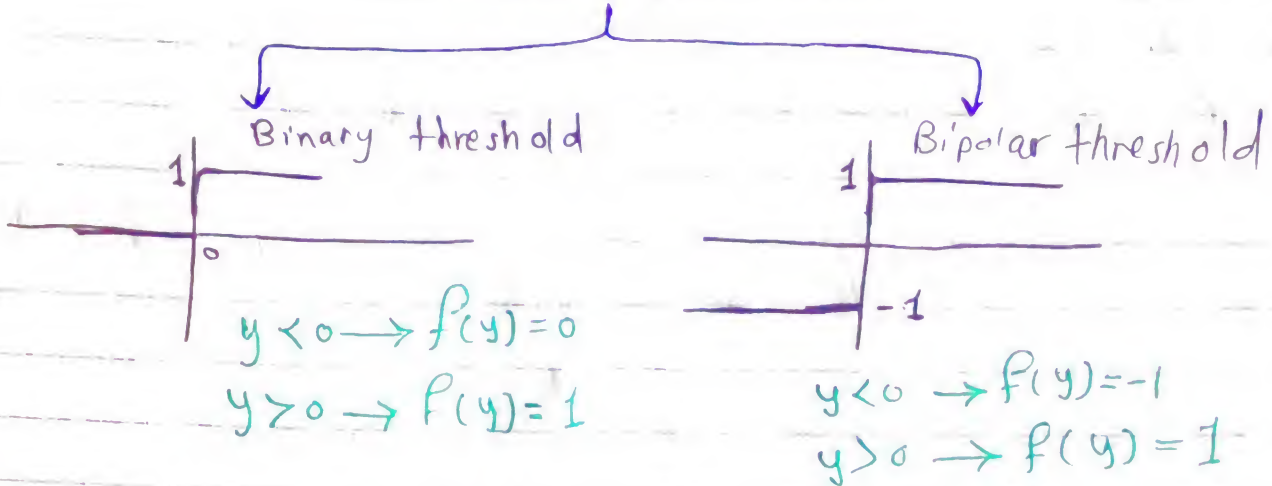 Binary threshold
1
0
y < 0 → f(y) = 0
y > 0 → f(y) = 1
Bipolar threshold
1
-1
y < 0 → f(y) = -1
y > 0 → f(y) = 1